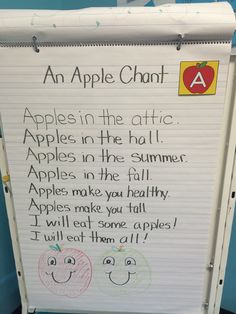 An Apple Chant
A
Apples in the attic.
Apples in the hall.
Apples in the summer.
Apples in the fall.
Apples make you healthy.
Apples make you tall
I will eat some apples!
I will eat them all!